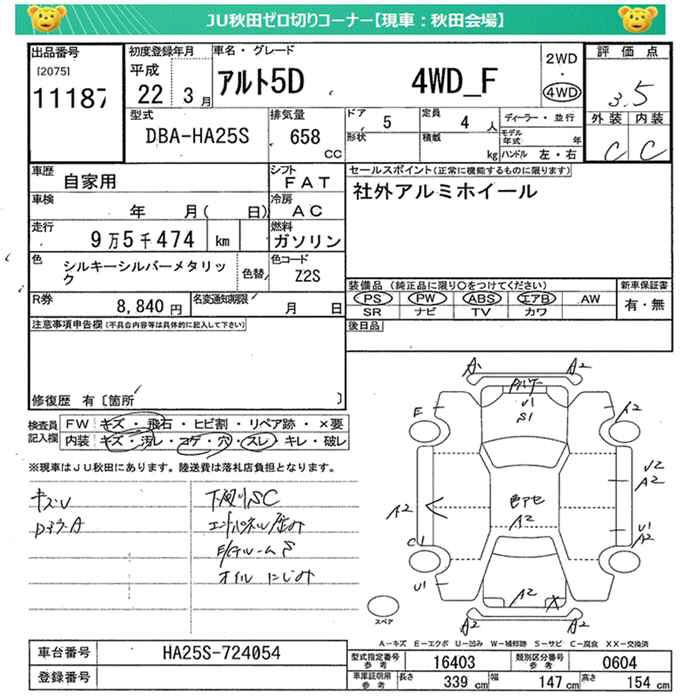 JU秋田ゼロ切りコーナー【現車：秋田会場】
出品番号
[2075]
11187
初度登録年月
平成
22 3月
車名・グレード
アルト5D 4WD_F
2WD
・
4WD
評価点
3.5
外装 内装
C C
型式
DBA-HA25S
排気量
658
CC
ドア 5
形状
定員 4 人
積載 kg
ディーラー・並行
モデル年式 年
ハンドル 左・右
車歴
自家用
シフト
FAT
車検
年 月( 日)
冷房
AC
走行
9万5千474 km
燃料
ガソリン
色
シルキーシルバーメタリック
色替
色コード
Z2S
R券
8,840円
名変通知期限
月 日
セールスポイント(正常に機能するものに限ります)
社外アルミホイール
装備品(純正品に限り○をつけてください)
PS PW ABS エアB AW
SR ナビ TV カワ
新車保証書
有・無
後日品
注意事項申告欄(不具合内容等は具体的に記入して下さい)
修復歴 有〔箇所 〕
検査員記入欄
FW キズ・飛石・ヒビ割・リペア跡・×要
内装 キズ・汚レ・コゲ・穴・スレ・キレ・破レ
※現車はJU秋田にあります。陸送費は落札店負担となります。
キズU
下廻りSC
エンドパネル歪み
E/gルームS
オイルにじみ
A A2
U1
S1
E A2
U2
A2
A2
色アセ
A2
C1 U1
A2
U1
A2 X
A2 A2
スペア
A－キズ E－エクボ U－凹み W－補修跡 S－サビ C－腐食 XX－交換済
車台番号
HA25S-724054
登録番号
型式指定番号
参考
16403
類別区分番号
参考
0604
車庫証明用
参考
長さ 339 cm
幅 147 cm
高さ 154 cm